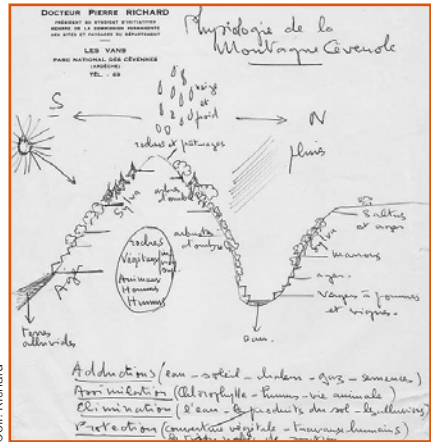 DOCTEUR PIERRE RICHARD
PRÉSIDENT DU SYNDICAT D'INITIATIVES
MEMBRE DE LA COMMISSION PERMANENTE
DES SITES ET PAYSAGES DU DÉPARTEMENT
LES VANS
PARC NATIONAL DES CÉVENNES
(ARDÈCHE)
TÉL. : 63
Physiologie de la
Montagne Cévenole
S
N
neige
et
froid
pluies
rochers et pâturages
Sylva
arbres
d'ombre
arbustes
d'ombre
Ager
roches
Végétaux
Animaux
Hommes
Humus
terres
alluvides
eau
Saltus
et ager
Sylva
marrons
ager
Verger à pommes
et vignes
Adductions (eau - soleil - chaleur - gaz - semences)
Assimilation (Chlorophylle - humus - vie animale)
Elimination (l'eau - les produits du sol - les alluvions)
Protection (couverture végétale - travaux humains)
Coll. Richard